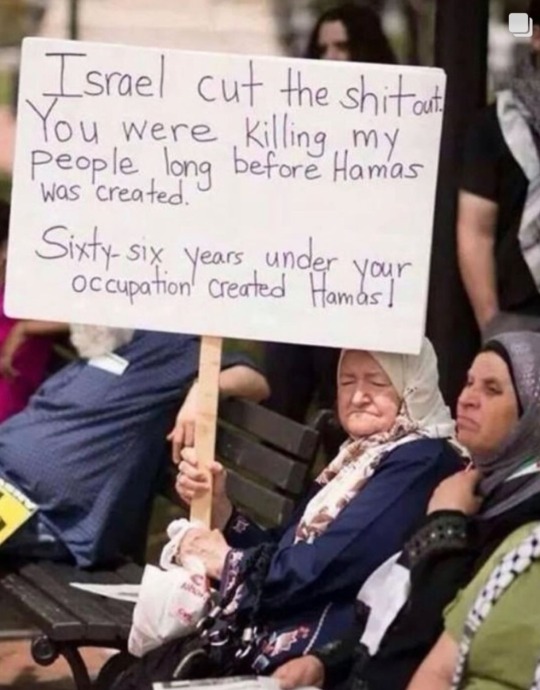 Israel cut the shit out.
You were killing my
people long before Hamas
was created.
Sixty-six years under your
occupation created Hamas!